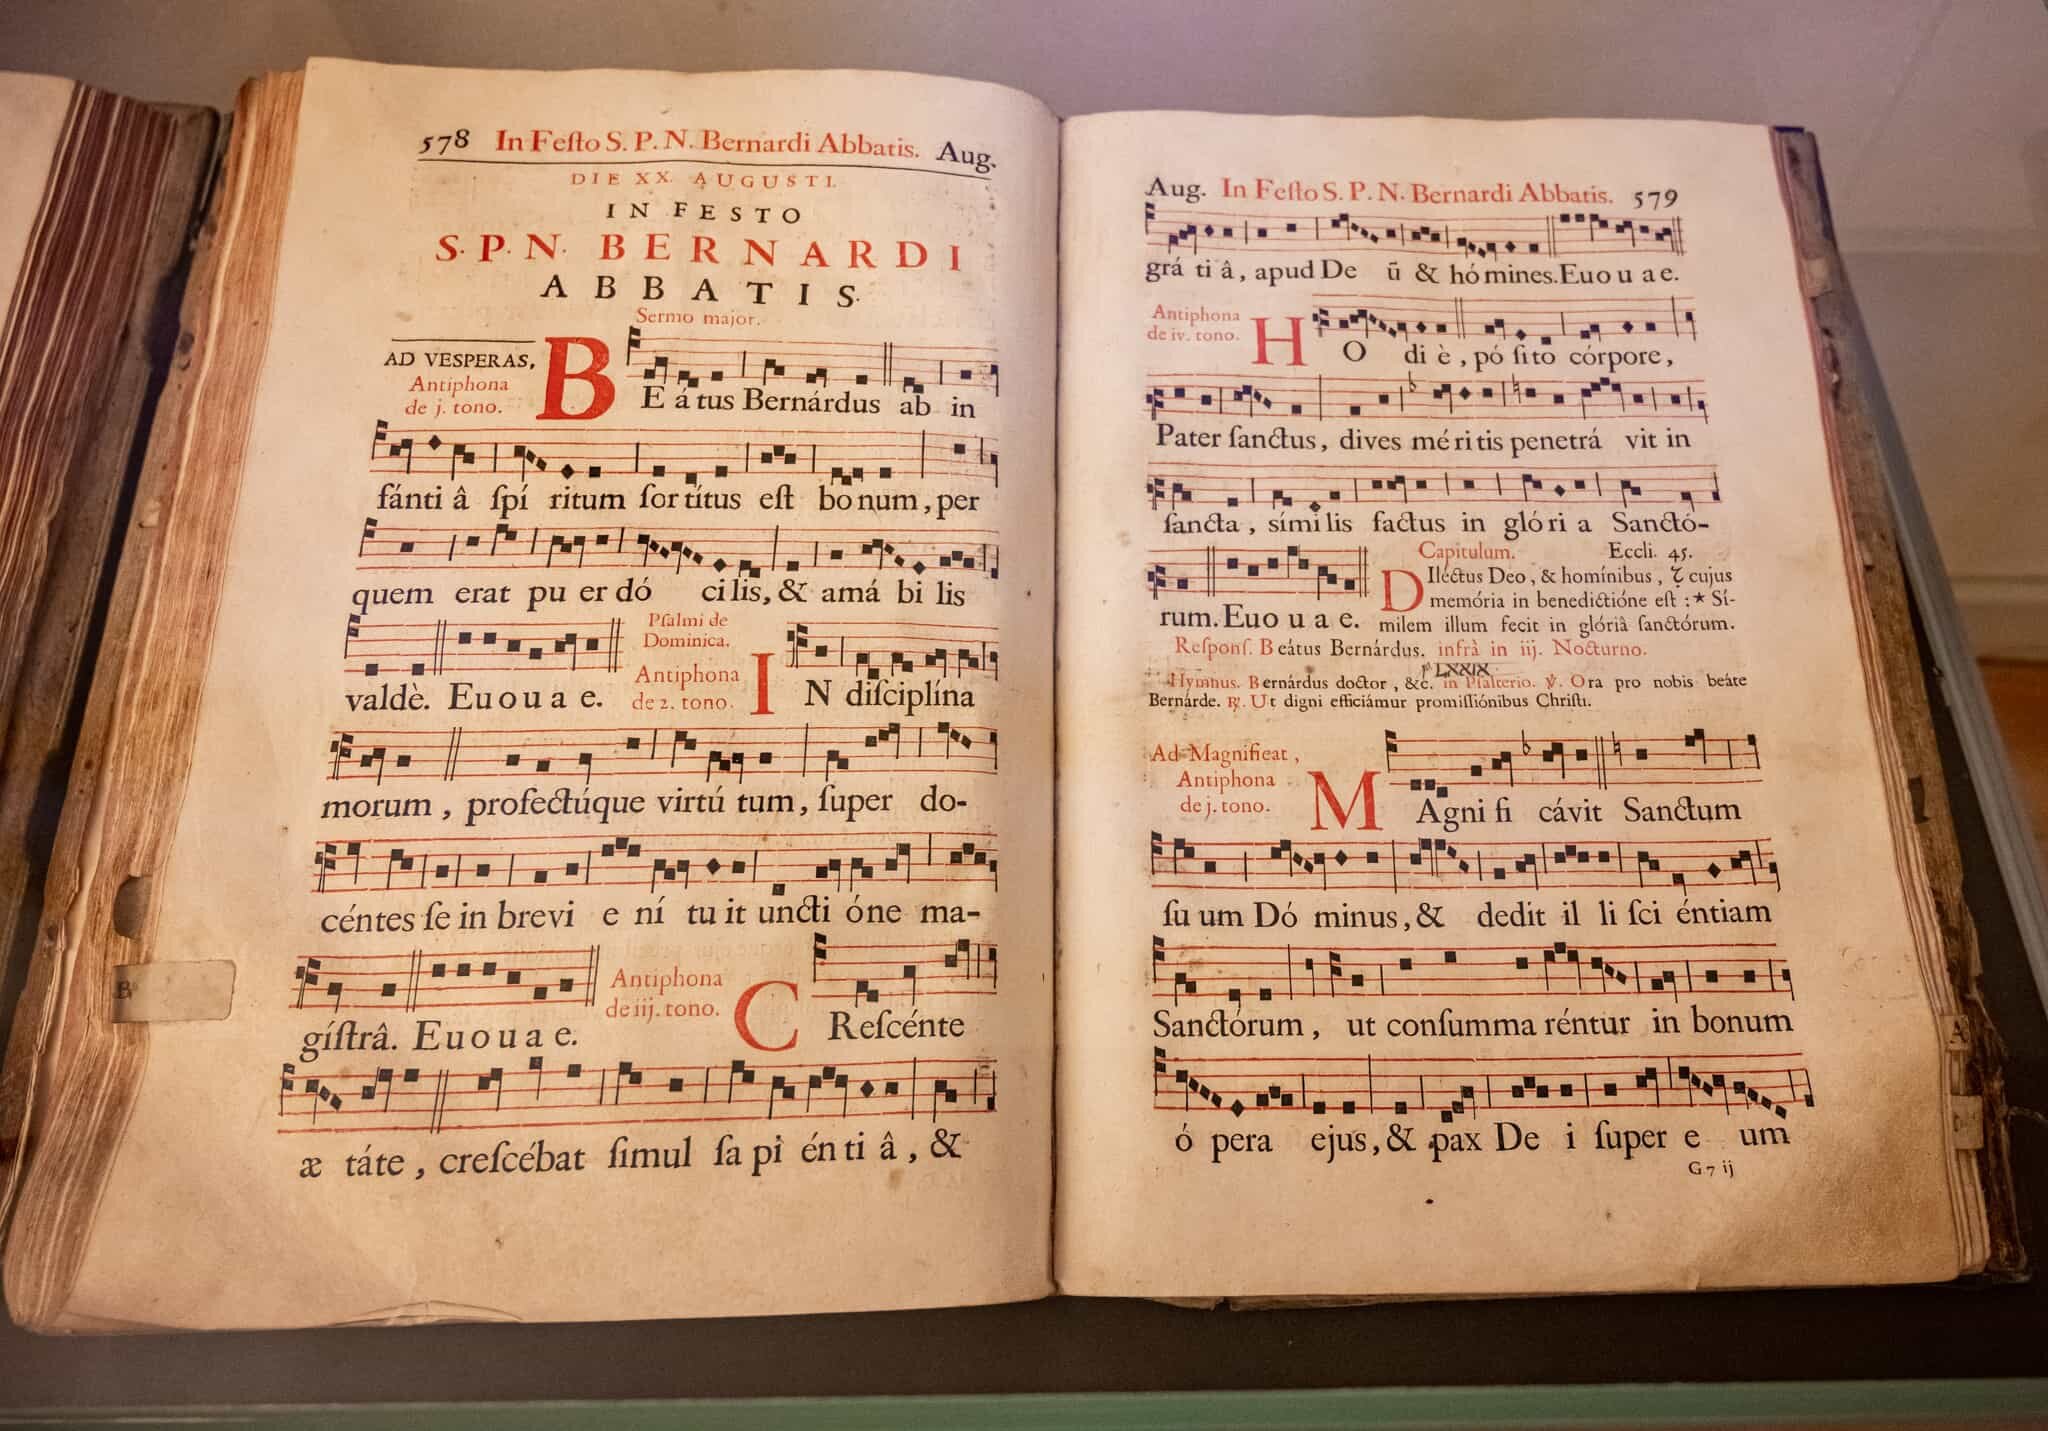 578 In Feſto S. P. N. Bernardi Abbatis. Aug.
DIE XX. AUGUSTI.
IN FESTO
S. P. N. BERNARDI
ABBATIS.
Sermo major.
AD VESPERAS,
Antiphona
de j. tono.
BEátus Bernárdus ab in
fánti â ſpí ritum ſortítus eſt bonum, per
quem erat pu er dó cilis, & amá bi lis
valdè. Euouae.
Pſalmi de
Dominica.
Antiphona
de 2. tono.
IN diſciplína
morum, profectúque virtú tum, ſuper do-
céntes ſe in brevi e ní tu it uncti óne ma-
gíſtrâ. Euouae.
Antiphona
de iij. tono.
CReſcénte
æ táte, creſcébat ſimul ſa pi én ti â, &
Aug. In Feſto S. P. N. Bernardi Abbatis. 579
grá ti â, apud De ū & hómines. Euouae.
Antiphona
de iv. tono.
HO di è, pó ſito córpore,
Pater ſanctus, dives méritis penetrá vit in
ſancta, símilis factus in glória Sanctó-
rum. Euouae.
Capitulum. Eccli. 45.
DIléctus Deo, & homínibus, & cujus
memória in benedictióne eſt : * Sí-
milem illum fecit in glóriâ ſanctórum.
Reſponſ. Beátus Bernárdus. infrà in iij. Nocturno.
LXXIX
Hymnus. Bernárdus doctor, &c. in Pſalterio. ℣. Ora pro nobis beáte
Bernárde. ℟. Ut digni efficiámur promiſſiónibus Chriſti.
Ad Magnificat,
Antiphona
de j. tono.
MAgnifi cávit Sanctum
ſu um Dó minus, & dedit il li ſci éntiam
Sanctórum, ut conſumma réntur in bonum
ó pera ejus, & pax De i ſuper e um
G 7 ij
B
A